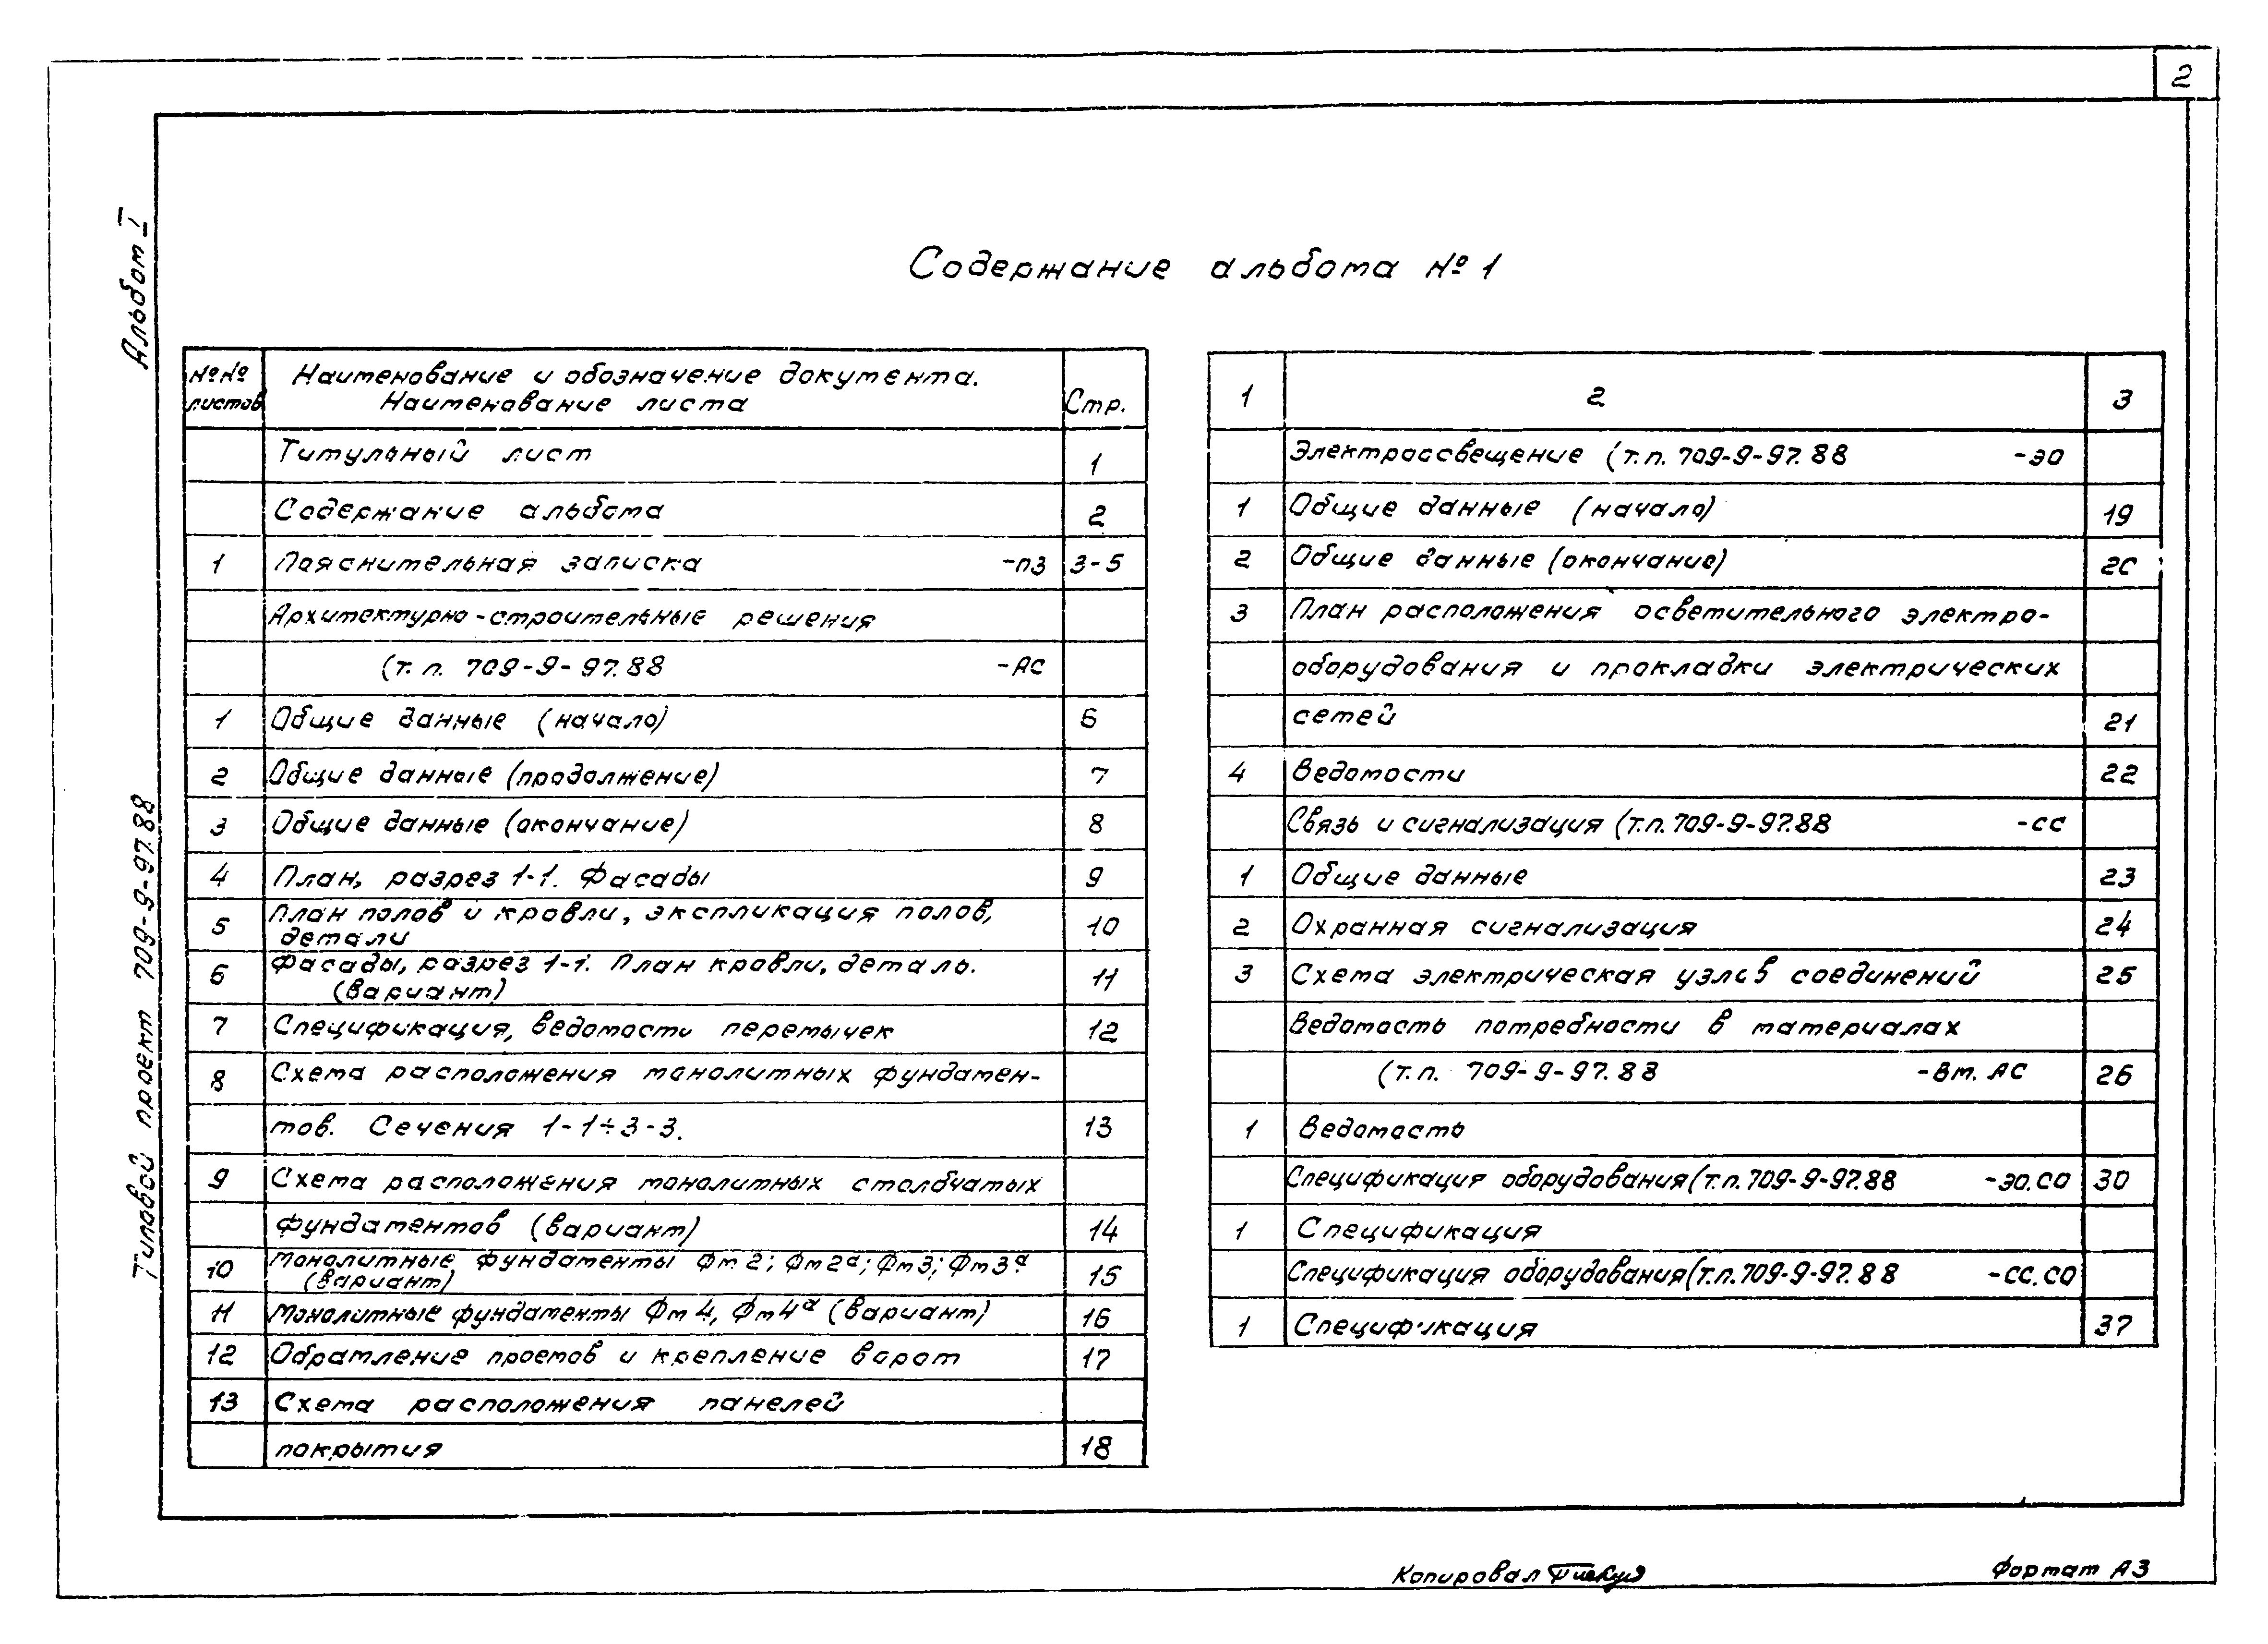 2
Альбом I
Типовой проект 709-9-97.88
Содержание альбома № 1
№№ листов
Наименование и обозначение документа.
Наименование листа
Стр.
Титульный лист 1
Содержание альбома 2
1 Пояснительная записка -ПЗ 3-5
Архитектурно-строительные решения
(т.п. 709-9-97.88 -АС
1 Общие данные (начало) 6
2 Общие данные (продолжение) 7
3 Общие данные (окончание) 8
4 План, разрез 1-1. Фасады 9
5 План полов и кровли, экспликация полов, 10
детали
6 Фасады, разрез 1-1. План кровли, деталь. 11
(вариант)
7 Спецификация, ведомости перемычек 12
8 Схема расположения монолитных фундамен-
тов. Сечения 1-1÷3-3. 13
9 Схема расположения монолитных столбчатых
фундаментов (вариант) 14
10 Монолитные фундаменты Фм 2; Фм2а; Фм3; Фм3а 15
(вариант)
11 Монолитные фундаменты Фм 4, Фм4а (вариант) 16
12 Обрамление проемов и крепление ворот 17
13 Схема расположения панелей
покрытия 18
1 2 3
Электроосвещение (т.п. 709-9-97.88 -ЭО
1 Общие данные (начало) 19
2 Общие данные (окончание) 20
3 План расположения осветительного электро-
оборудования и прокладки электрических
сетей 21
4 Ведомости 22
Связь и сигнализация (т.п. 709-9-97.88 -СС
1 Общие данные 23
2 Охранная сигнализация 24
3 Схема электрическая узлов соединений 25
Ведомость потребности в материалах
(т.п. 709-9-97.88 -Вм. АС 26
1 Ведомость
Спецификация оборудования (т.п. 709-9-97.88 -ЭО.СО 30
1 Спецификация
Спецификация оборудования (т.п. 709-9-97.88 -СС.СО
1 Спецификация 37
Копировал
Формат А3